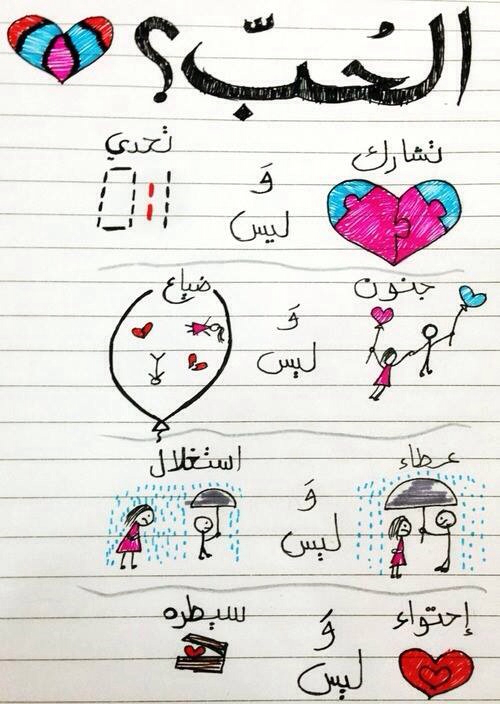 الحُبّ؟
تشارك وَ ليس تحدي
جنون وَ ليس ضياع
عطاء وَ ليس استغلال
إحتواء وَ ليس سيطره